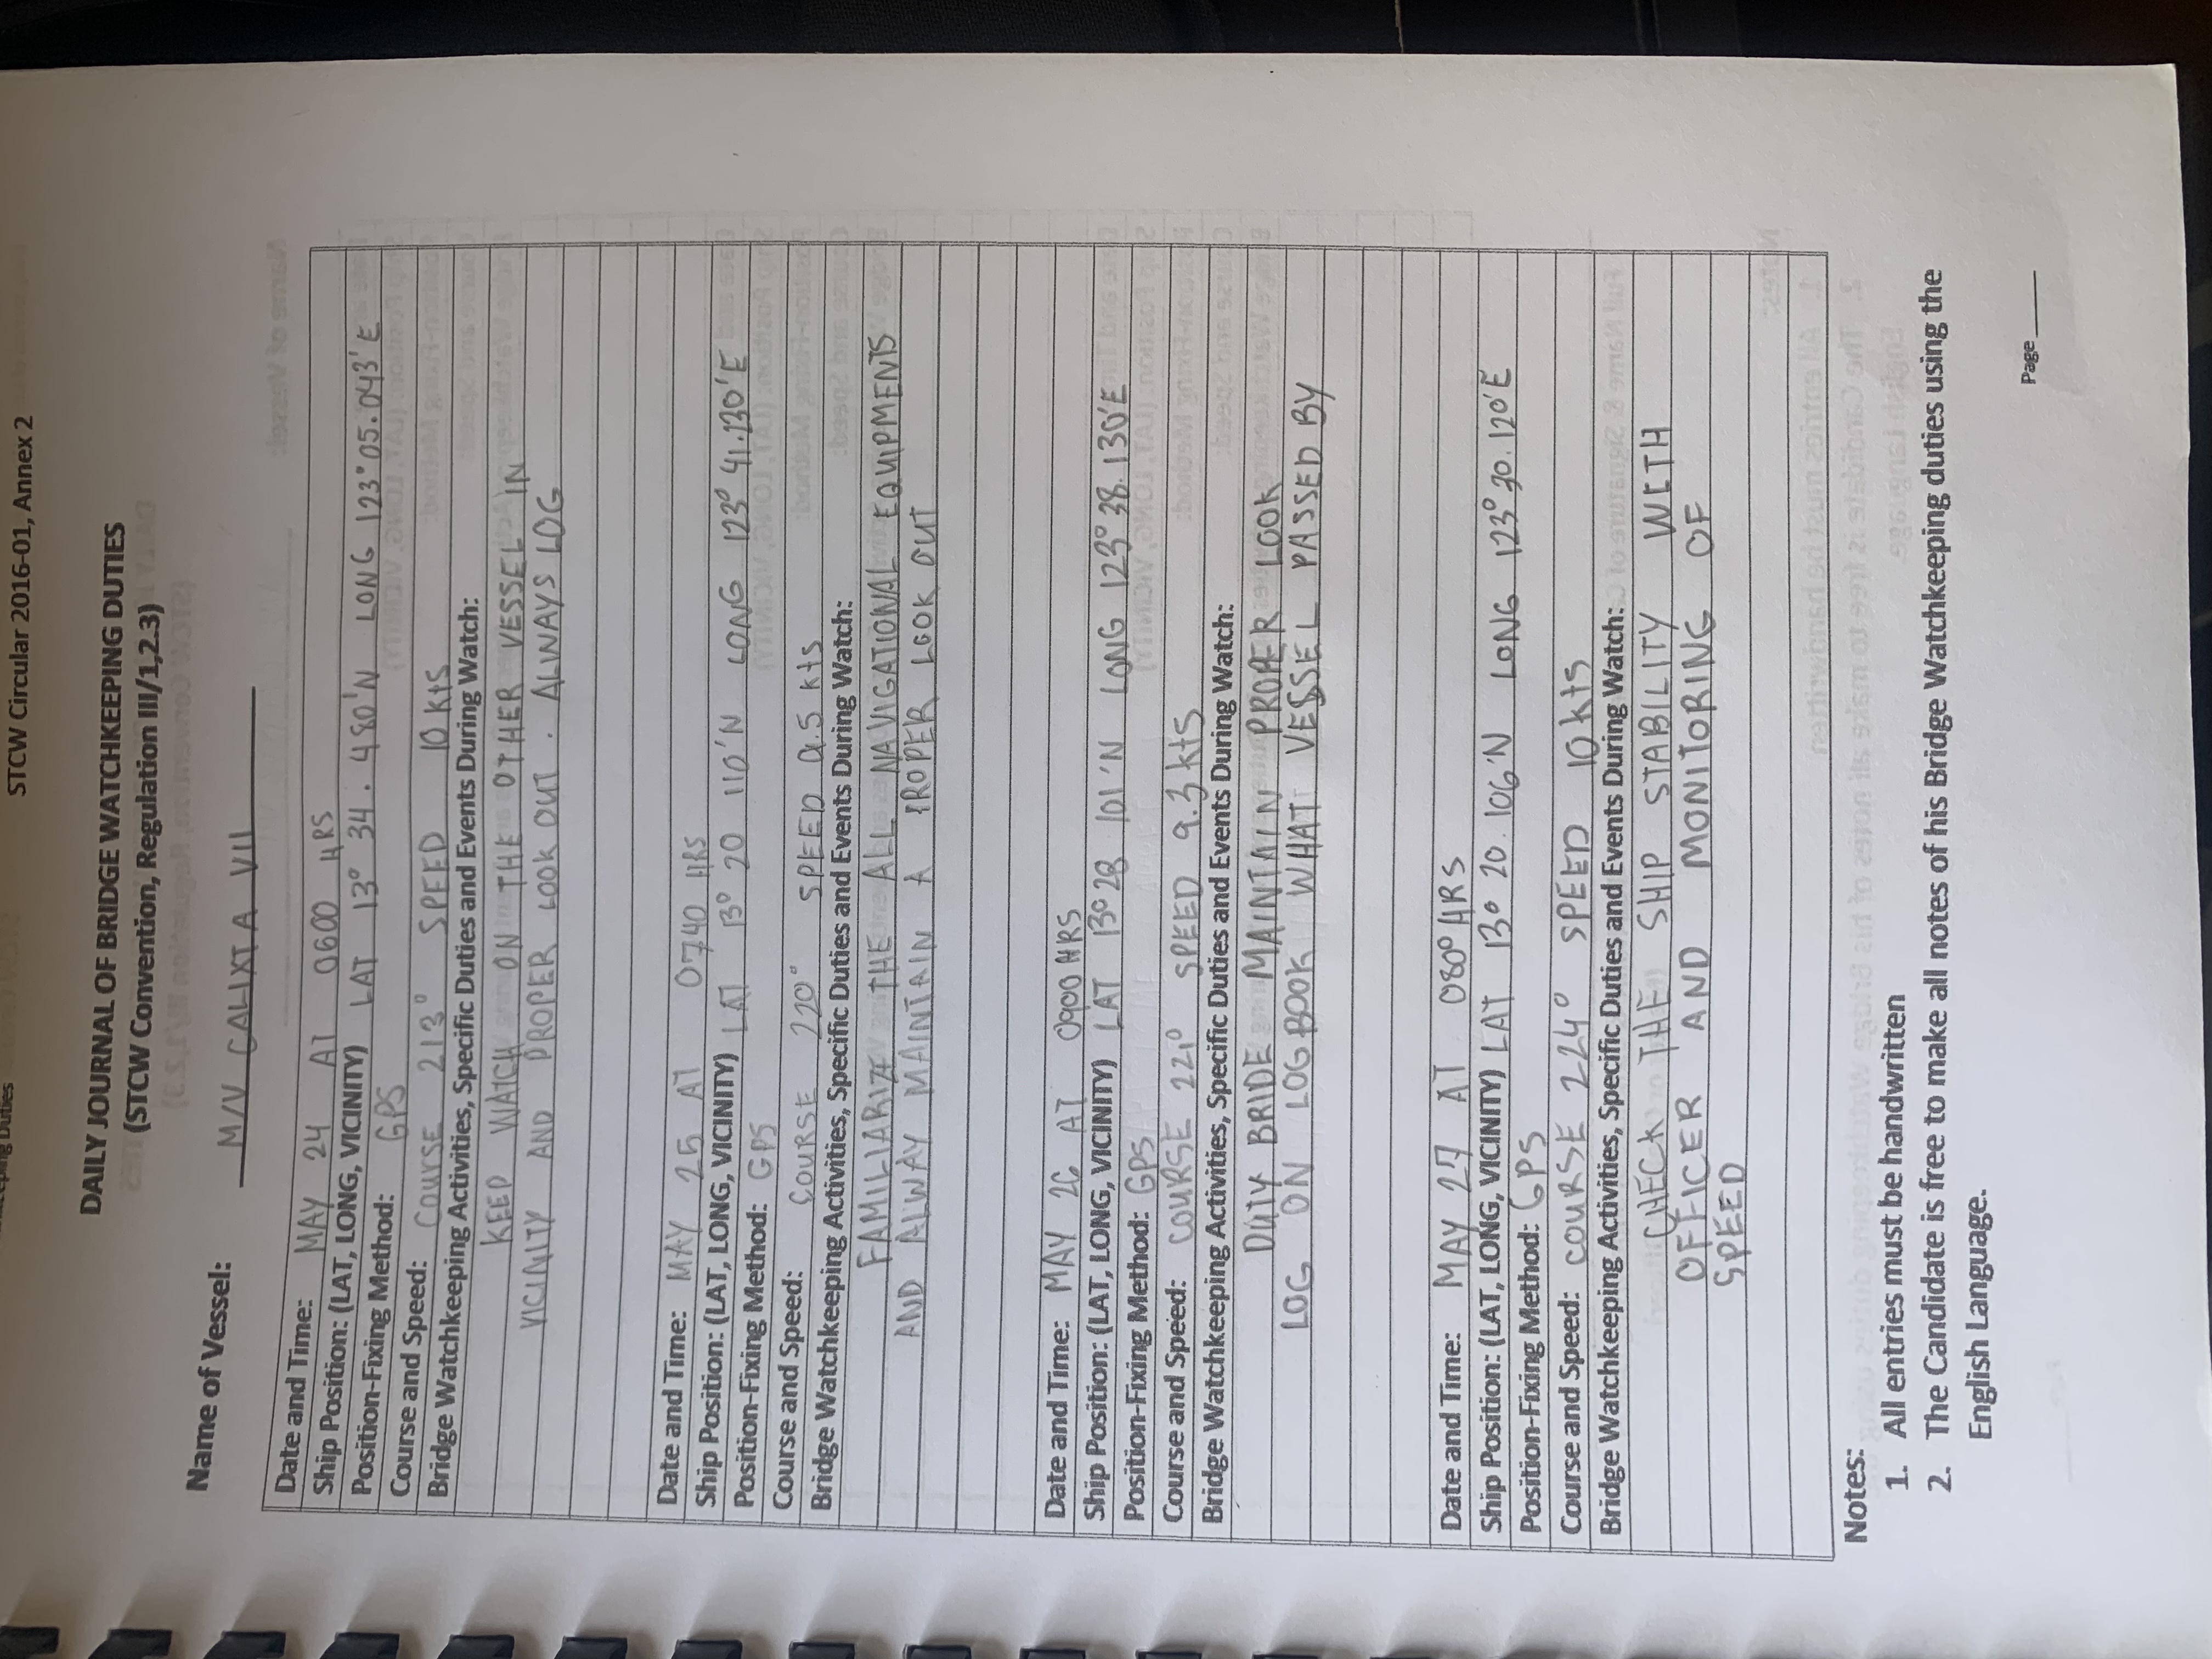 eping Duties
STCW Circular 2016-01, Annex 2
DAILY JOURNAL OF BRIDGE WATCHKEEPING DUTIES
(STCW Convention, Regulation III/1,2.3)
Name of Vessel: M/V CALIXTA VII
Date and Time: MAY 24 AT 0600 HRS
Ship Position: (LAT, LONG, VICINITY) LAT 13° 34. 480'N LONG 123° 05.043'E
Position-Fixing Method: GPS
Course and Speed: COURSE 213° SPEED 10 KtS
Bridge Watchkeeping Activities, Specific Duties and Events During Watch:
KEEP WATCH ON THE OTHER VESSEL IN
VICINITY AND PROPER LOOK OUT. ALWAYS LOG
Date and Time: MAY 25 AT 0740 HRS
Ship Position: (LAT, LONG, VICINITY) LAT 13° 20 110'N LONG 123° 41.230'E
Position-Fixing Method: GPS
Course and Speed: COURSE 220° SPEED 9.5 KtS
Bridge Watchkeeping Activities, Specific Duties and Events During Watch:
FAMILIARIZE THE ALL NAVIGATIONAL EQUIPMENTS
AND ALWAY MAINTAIN A PROPER LOOK OUT
Date and Time: MAY 26 AT 0900 HRS
Ship Position: (LAT, LONG, VICINITY) LAT 13° 28 101'N LONG 123° 38. 130'E
Position-Fixing Method: GPS
Course and Speed: COURSE 221° SPEED 9.3 KtS
Bridge Watchkeeping Activities, Specific Duties and Events During Watch:
DUTY BRIDE MAINTAIN PROPER LOOK
LOG ON LOGBOOK WHAT VESSEL PASSED BY
Date and Time: MAY 27 AT 0800 HRS
Ship Position: (LAT, LONG, VICINITY) LAT 13° 20. 106'N LONG 123° 30. 120'E
Position-Fixing Method: GPS
Course and Speed: COURSE 224° SPEED 10 KtS
Bridge Watchkeeping Activities, Specific Duties and Events During Watch:
CHECK THE SHIP STABILITY WITH
OFFICER AND MONITORING OF
SPEED
Notes:
1. All entries must be handwritten
2. The Candidate is free to make all notes of his Bridge Watchkeeping duties using the
English Language.
Page